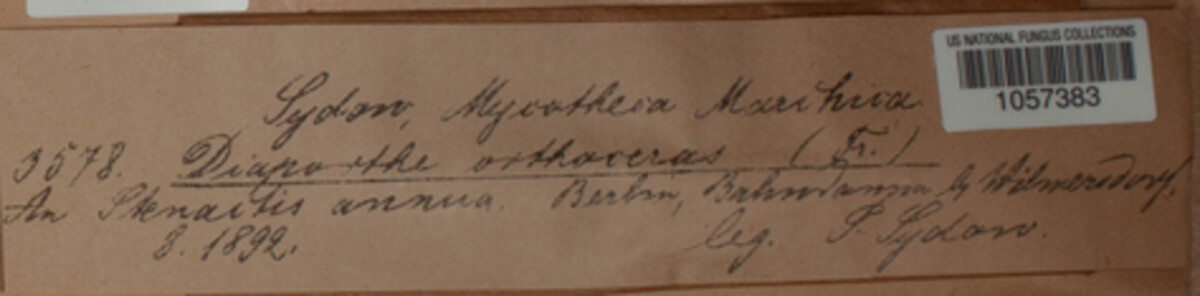 US NATIONAL FUNGUS COLLECTIONS
1057383
Sydow, Mycotheca Marchica.
3578. Diaporthe orthoceras (Fr.)
An Stenactis annua. Berlin, Bahndamm b. Wilmersdorf.
8. 1892. leg. P. Sydow.